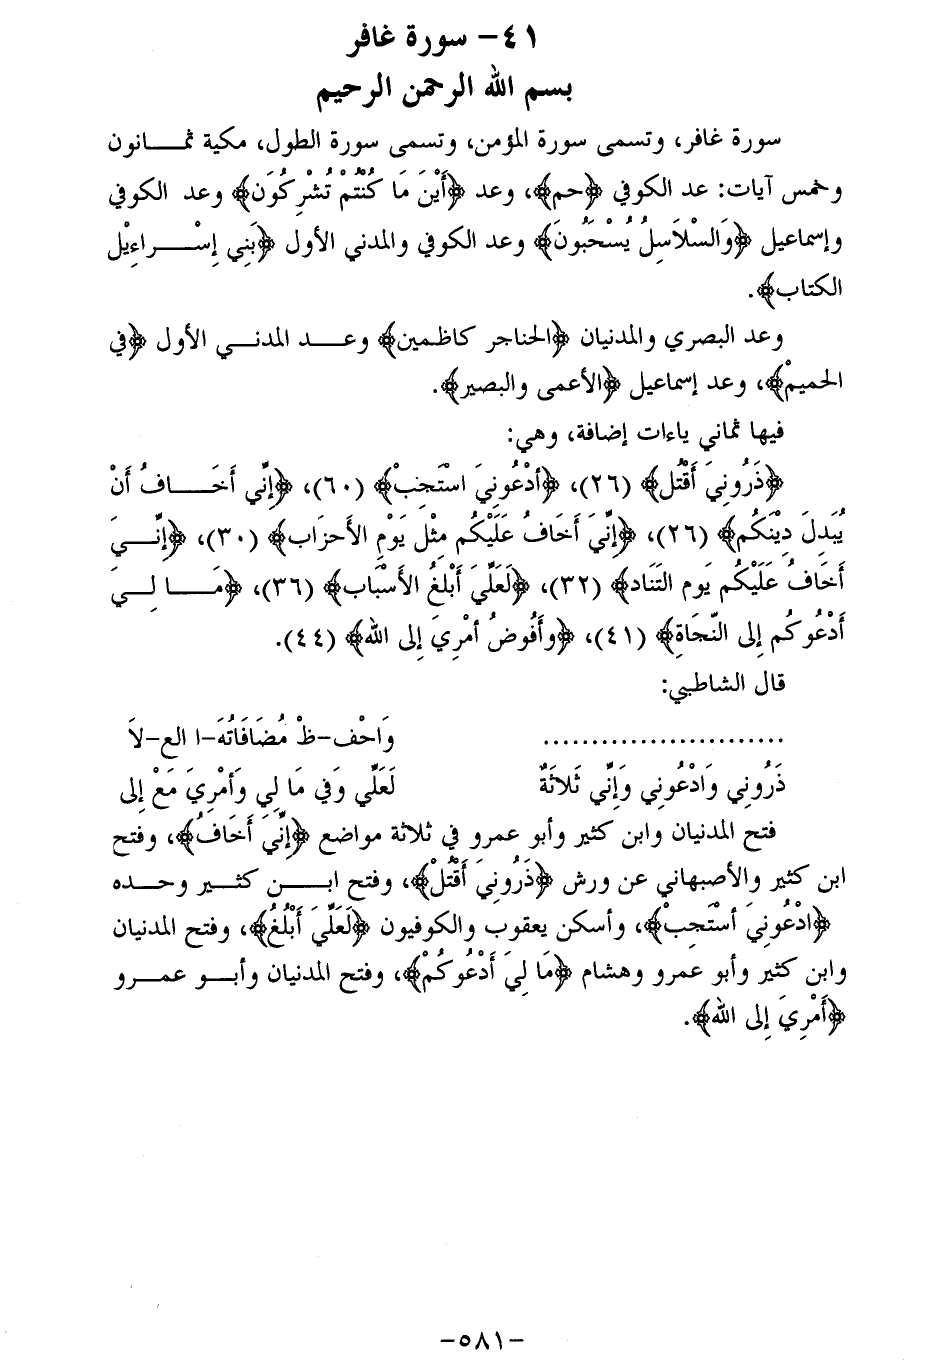 ٤١- سورة غافر
بسم الله الرحمن الرحيم
سورة غافر، وتسمى سورة المؤمن، وتسمى سورة الطول، مكية ثمـــانون
وخمس آيات: عد الكوفي ﴿حم﴾، وعد ﴿أَيْنَ مَا كُنْتُمْ تُشْرِكُونَ﴾ وعد الكوفي
وإسماعيل ﴿وَالسَّلاَسِلُ يُسْحَبُونَ﴾ وعد الكوفي والمدني الأول ﴿بَنِي إِسْـــراءِيْل
الكتاب﴾.
وعد البصري والمدنيان ﴿الحناجر كاظمين﴾ وعـــد المدنـــي الأول ﴿في
الحميمْ﴾، وعد إسماعيل ﴿الأعمى والبصير﴾.
فيها ثماني ياءات إضافة، وهي:
﴿ذَرُونِيَ أَقْتُل﴾ (٢٦)، ﴿أدْعُونِيَ اسْتَجِبْ﴾ (٦٠)، ﴿إِنِّي أَخَـــافُ أَنْ
يُبَدِلَ دِيْنَكُم﴾ (٢٦)، ﴿إِنِّيَ أَخَافُ عَلَيْكُم مِثْل يَوْمِ الأَحزَاب﴾ (٣٠)، ﴿إِنّـــيَ
أَخَافُ عَلَيْكُم يَوم التَنَاد﴾ (٣٢)، ﴿لَعَلِّيَ أَبلغُ الأَسْبَاب﴾ (٣٦)، ﴿مَـــا لِـــيَ
أَدْعُوكُم إِلى النّجَاةِ﴾ (٤١)، ﴿وأَفُوضُ أمْرِيَ إِلى الله﴾ (٤٤).
قال الشاطبي:
......................... وَاحْف-ظْ مُضَافَاتُهَ-ا الع-لاَ
ذَرُوني وَادْعُوني وَإِنِّي ثَلاَثَةٌ لَعَلِّي وَفي مَا لِي وَأمْرِيَ مَعْ إِلى
فتح المدنيان وابن كثير وأبو عمرو في ثلاثة مواضع ﴿إِنِّيَ أَخَافُ﴾، وفتح
ابن كثير والأصبهاني عن ورش ﴿ذَرُونِيَ أَقْتُلْ﴾، وفتح ابـــن كثـــير وحـــده
﴿ادْعُونِيَ أسْتَجِبْ﴾، وأسكن يعقوب والكوفيون ﴿لَعَلِّيَ أَبْلُغُ﴾، وفتح المدنيان
وابن كثير وأبو عمرو وهشام ﴿مَا لِيَ أَدْعُوكُمْ﴾، وفتح المدنيان وأبـــو عمـــرو
﴿أَمْرِيَ إِلى الله﴾.
-٥٨١-